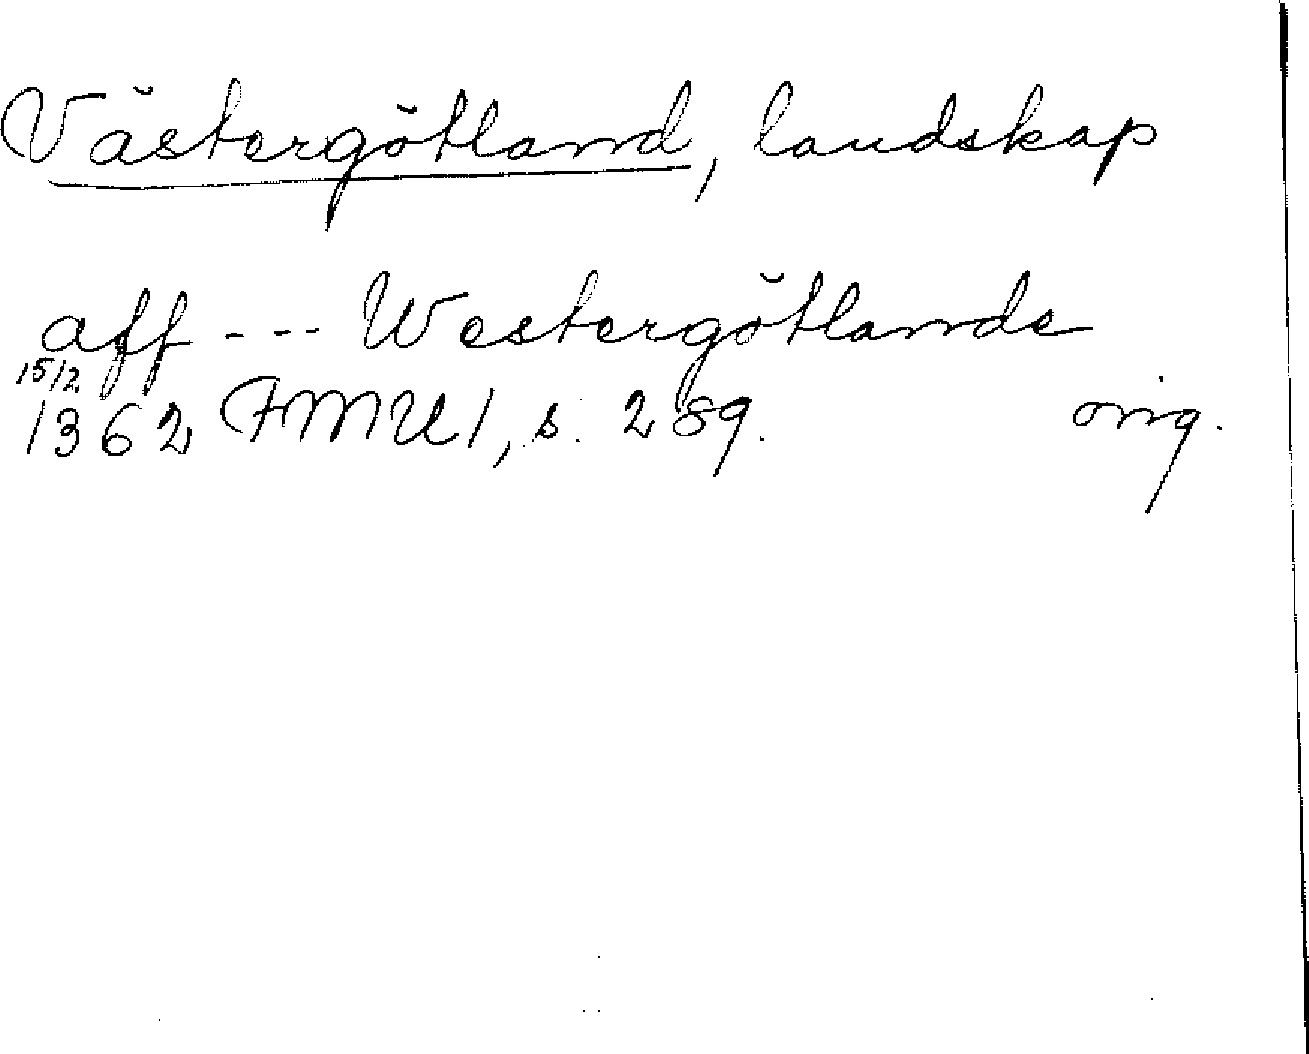 Västergötland, landskap
aff --- Westergötlande
15/2
1362 FMU 1, s. 289. orig.